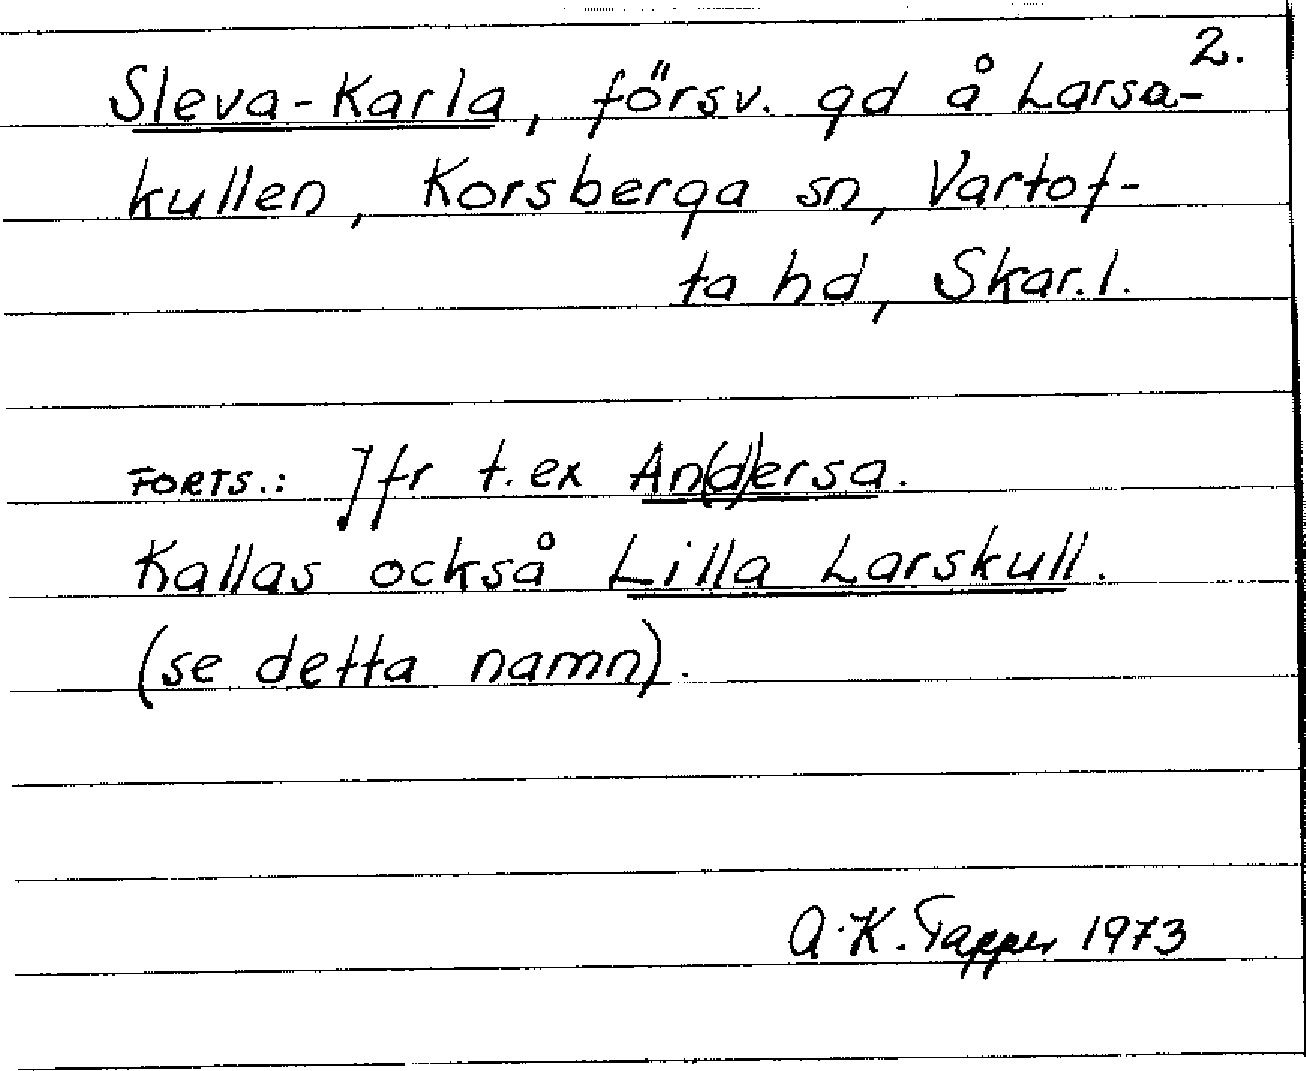 2.
Sleva-Karla, försv. gd å Larsa-
kullen, Korsberga sn, Vartof-
ta hd, Skar. l.
FORTS.: Jfr t. ex An(d)ersa.
Kallas också Lilla Larskull.
(se detta namn).
A.K. Tapper 1973